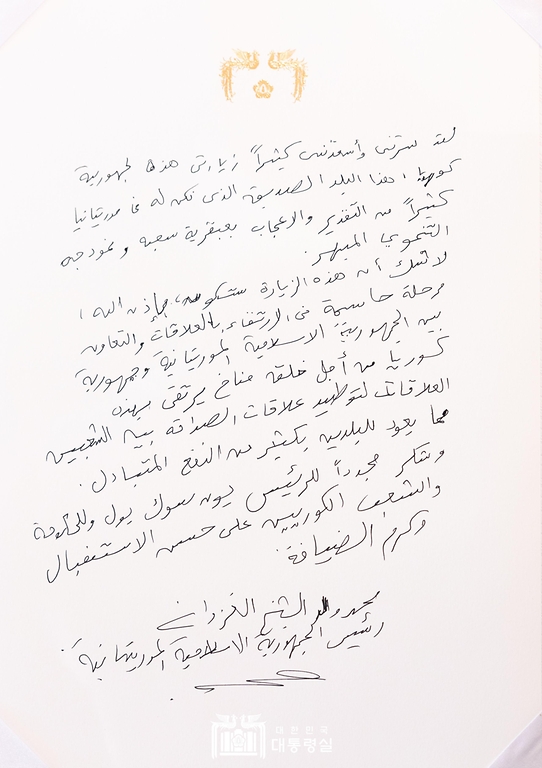 لقد سرتني وأسعدتني كثيراً زيارتي هذه لجمهورية
كوريا، هذا البلد الصديق الذي نكن له في موريتانيا
كثيراً من التقدير والإعجاب بعبقرية شعبه ونموذجه
التنموي المبهر.
لا شك أن هذه الزيارة ستكون، بإذن الله،
مرحلة حاسمة في الارتقاء بالعلاقات والتعاون
بين الجمهورية الاسلامية الموريتانية وجمهورية
كوريا من أجل خلق مناخ يرتقي بهذه
العلاقات لتوطيد علاقات الصداقة بين الشعبين
مما يعود للبلدين بكثير من النفع المتبادل.
وشكر مجدداً للرئيس يون سوك يول وللحكومة
والشعب الكوريين على حسن الاستقبال
وكرم الضيافة.
محمد ولد الشيخ الغزواني
رئيس الجمهورية الاسلامية الموريتانية
대한민국
대통령실